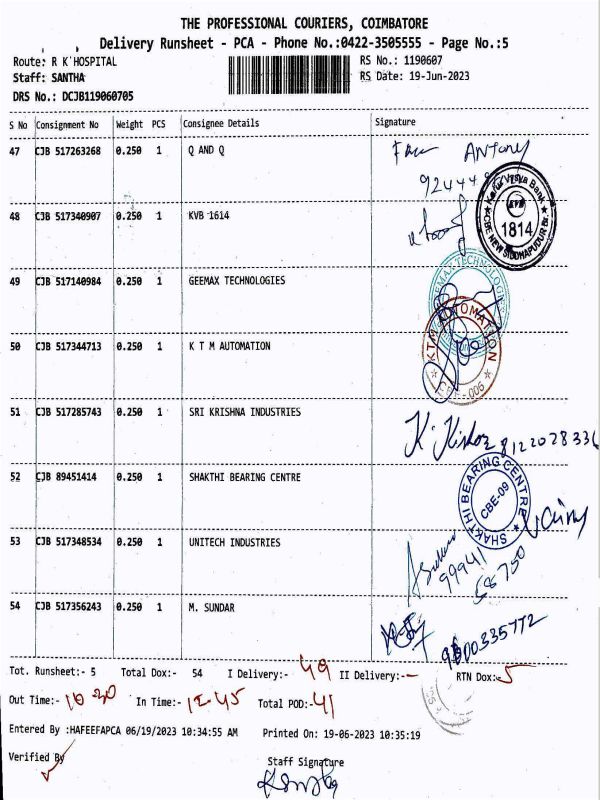 THE PROFESSIONAL COURIERS, COIMBATORE
Delivery Runsheet - PCA - Phone No.:0422-3505555 - Page No.:5
Route: R K HOSPITAL
RS No.: 1190607
Staff: SANTHA
RS Date: 19-Jun-2023
DRS No.: DCJB119060705
S No Consignment No Weight PCS Consignee Details Signature
47 CJB 517263268 0.250 1 Q AND Q
ANTONY
92444
48 CJB 517340907 0.250 1 KVB 1614
Karur Vysya Bank
KVB
1814
CBE NEW SIDDHAPUDUR Br.
49 CJB 517140984 0.250 1 GEEMAX TECHNOLOGIES
GEEMAX TECHNOLOGIES
50 CJB 517344713 0.250 1 K T M AUTOMATION
KTM AUTOMATION
51 CJB 517285743 0.250 1 SRI KRISHNA INDUSTRIES
K. Kishor 8122028336
52 CJB 89451414 0.250 1 SHAKTHI BEARING CENTRE
SHAKTHI BEARING CENTRE
CBE-09
53 CJB 517348534 0.250 1 UNITECH INDUSTRIES
99941
58750
54 CJB 517356243 0.250 1 M. SUNDAR
9600335772
Tot. Runsheet:- 5 Total Dox:- 54 I Delivery:- 49 II Delivery:-- RTN Dox:- 5
Out Time:- 10-30 In Time:- 12-45 Total POD:- 41
Entered By :HAFEEFAPCA 06/19/2023 10:34:55 AM Printed On: 19-06-2023 10:35:19
Verified By
Staff Signature